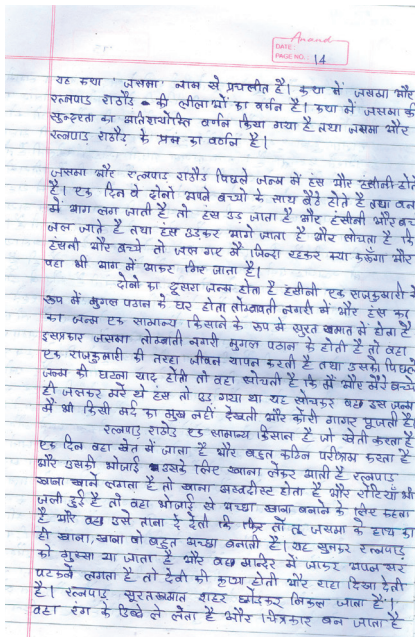 Anand
DATE:
PAGE NO.: 14
यह कथा 'जसमा' नाम से प्रचलीत है। कथा में जसमा और
रत्नपाड़ राठौड़ की लीलाओं का वर्णन है। कथा में जसमा की
सुन्दरता का अतिशयोक्ति वर्णन किया गया है तथा जसमा और
रत्नपाड़ राठौड़ के प्रेम का वर्णन है।
जसमा और रत्नपाड़ राठौड़ पिछले जन्म में हंस और हंसीनी होते
है। एक दिन वे दोनो अपने बच्चो के साथ बैठे होते है तथा वन
में आग लग जाती है तो हंस उड़ जाता है और हंसीनी और बच्चे
जल जाते है तथा हंस उड़कर आगे जाता है और सोचता है कि
हंसनी और बच्चे तो जल गए में जिन्दा रहकर क्या करूँगा और
वहा भी आग में आकर गिर जाता है।
दोनो का दूसरा जन्म होता है हंसीनी एक राजकुमारी के
रूप में मुगल पठान के घर होता तोम्बावती नगरी में और हंस का
का जन्म एक सामान्य किसान के रूप में सुरत खमात में होता है
इसप्रकार जसमा तोम्बावती नगरी मुगल पठान के होती है तो वहा
एक राजकुमारी की तरहा जीवन यापन करती है तथा उसको पिछले
जन्म की घटना याद होती तो वहा सोचती है कि में और मेरे बच्चे
ही जलकर मरे थे हंस तो उड़ गया था यह सोचकर वह इस जन्म
में भी किसी मर्द का मुख नहीं देखती और कोरी गागर पूजती है।
रत्नपाड़ राठौड़ एक सामान्य किसान है जो खेती करता है
एक दिन वहा खेत में जाता है और बहुत कठिन परीश्रम करता है
और उसकी भोजाई उसके लिए खाना लेकर आती है रत्नपाड़
खाना खाने लगता है तो खाना अस्वादीस्ट होता है और रोटियाँ भी
जली हुई है तो वहा भोजाई से अच्छा खाना बनाने के लिए कहता
है और वह उसे ताना दे देती कि फिर तो तू जसमा के हाथ का
ही खाना, खाना वो बहुत अच्छा बनाती है। यह सुनकर रत्नपाड़
को गुस्सा आ जाता है और वह मन्दिर में जाकर अपना सर
पटकने लगता है तो देवी की कृपा होती और राहा दिखा देती
है। रत्नपाड़ सुरतखमात शहर छोडकर निकल जाता है।
वहा रंग के डिब्बे ले लेता है और चित्रकार बन जाता है